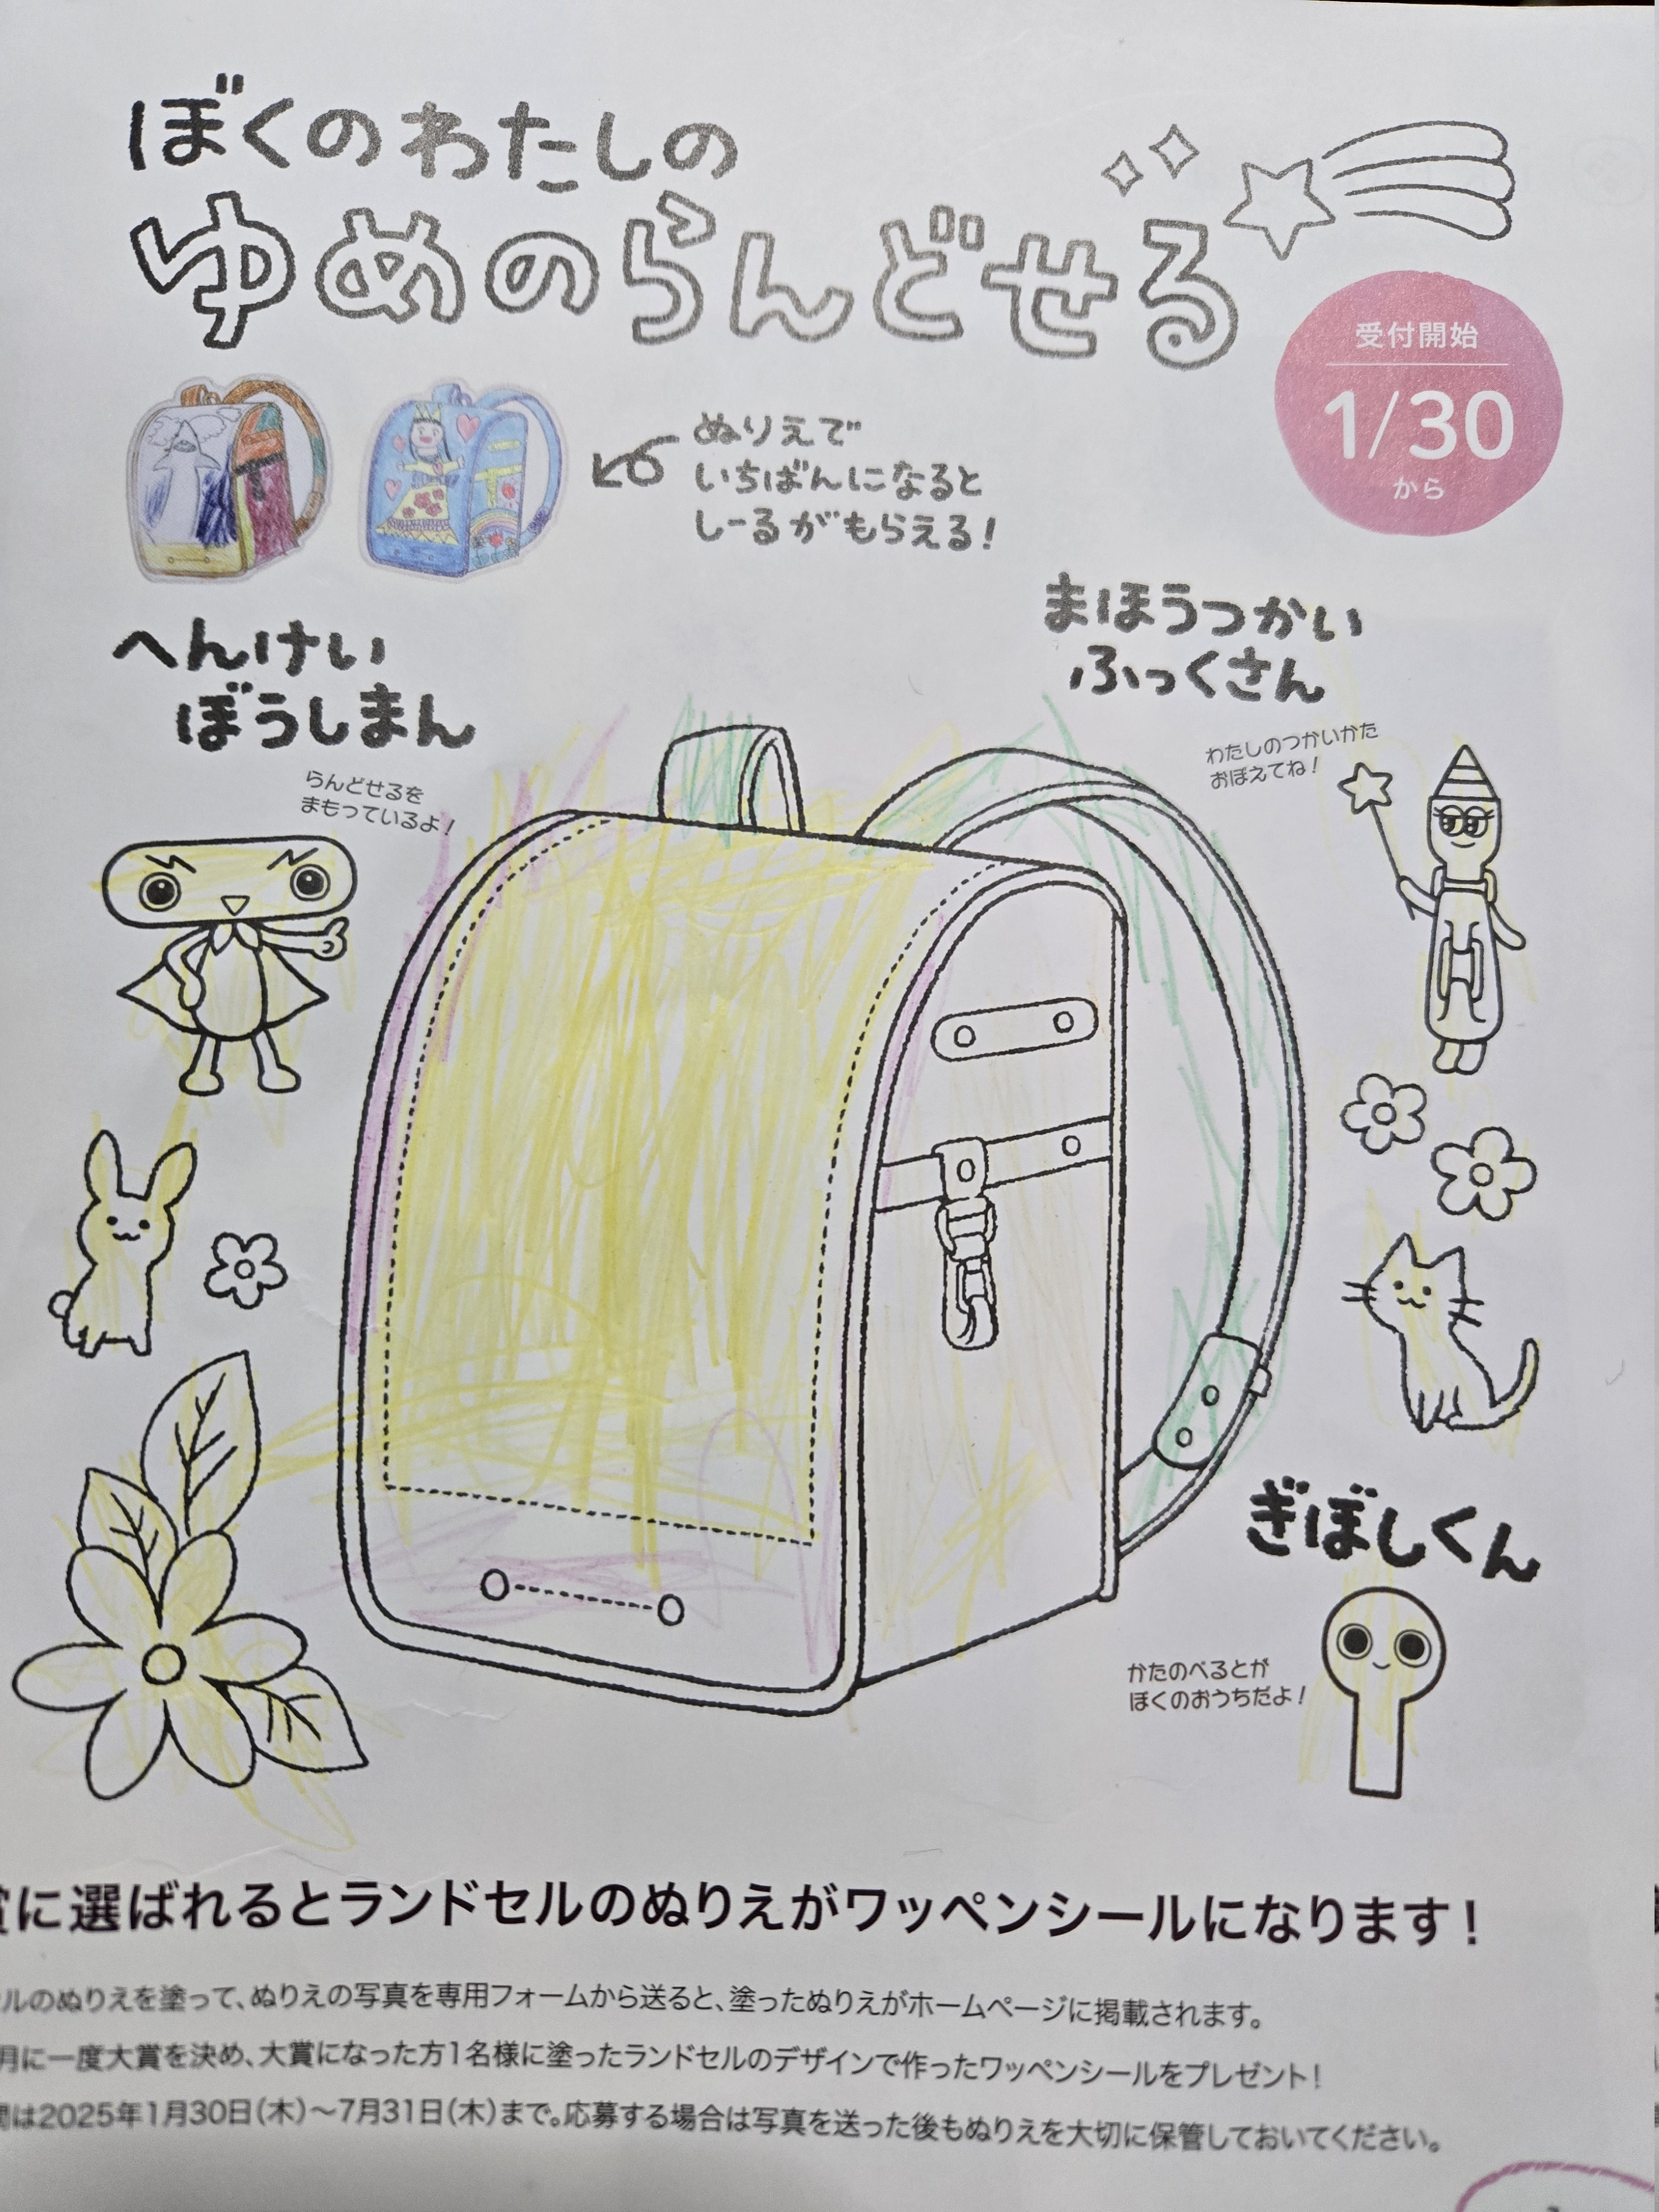 ぼくのわたしの
ゆめのらんどせる
受付開始
1/30
から
ぬりえで
いちばんになると
しーるがもらえる!
へんけい
ぼうしまん
らんどせるを
まもっているよ!
まほうつかい
ふっくさん
わたしのつかいかた
おぼえてね!
ぎぼしくん
かたのべるとが
ぼくのおうちだよ!
賞に選ばれるとランドセルのぬりえがワッペンシールになります!
ルのぬりえを塗って、ぬりえの写真を専用フォームから送ると、塗ったぬりえがホームページに掲載されます。
月に一度大賞を決め、大賞になった方1名様に塗ったランドセルのデザインで作ったワッペンシールをプレゼント!
間は2025年1月30日(木)〜7月31日(木)まで。応募する場合は写真を送った後もぬりえを大切に保管しておいてください。